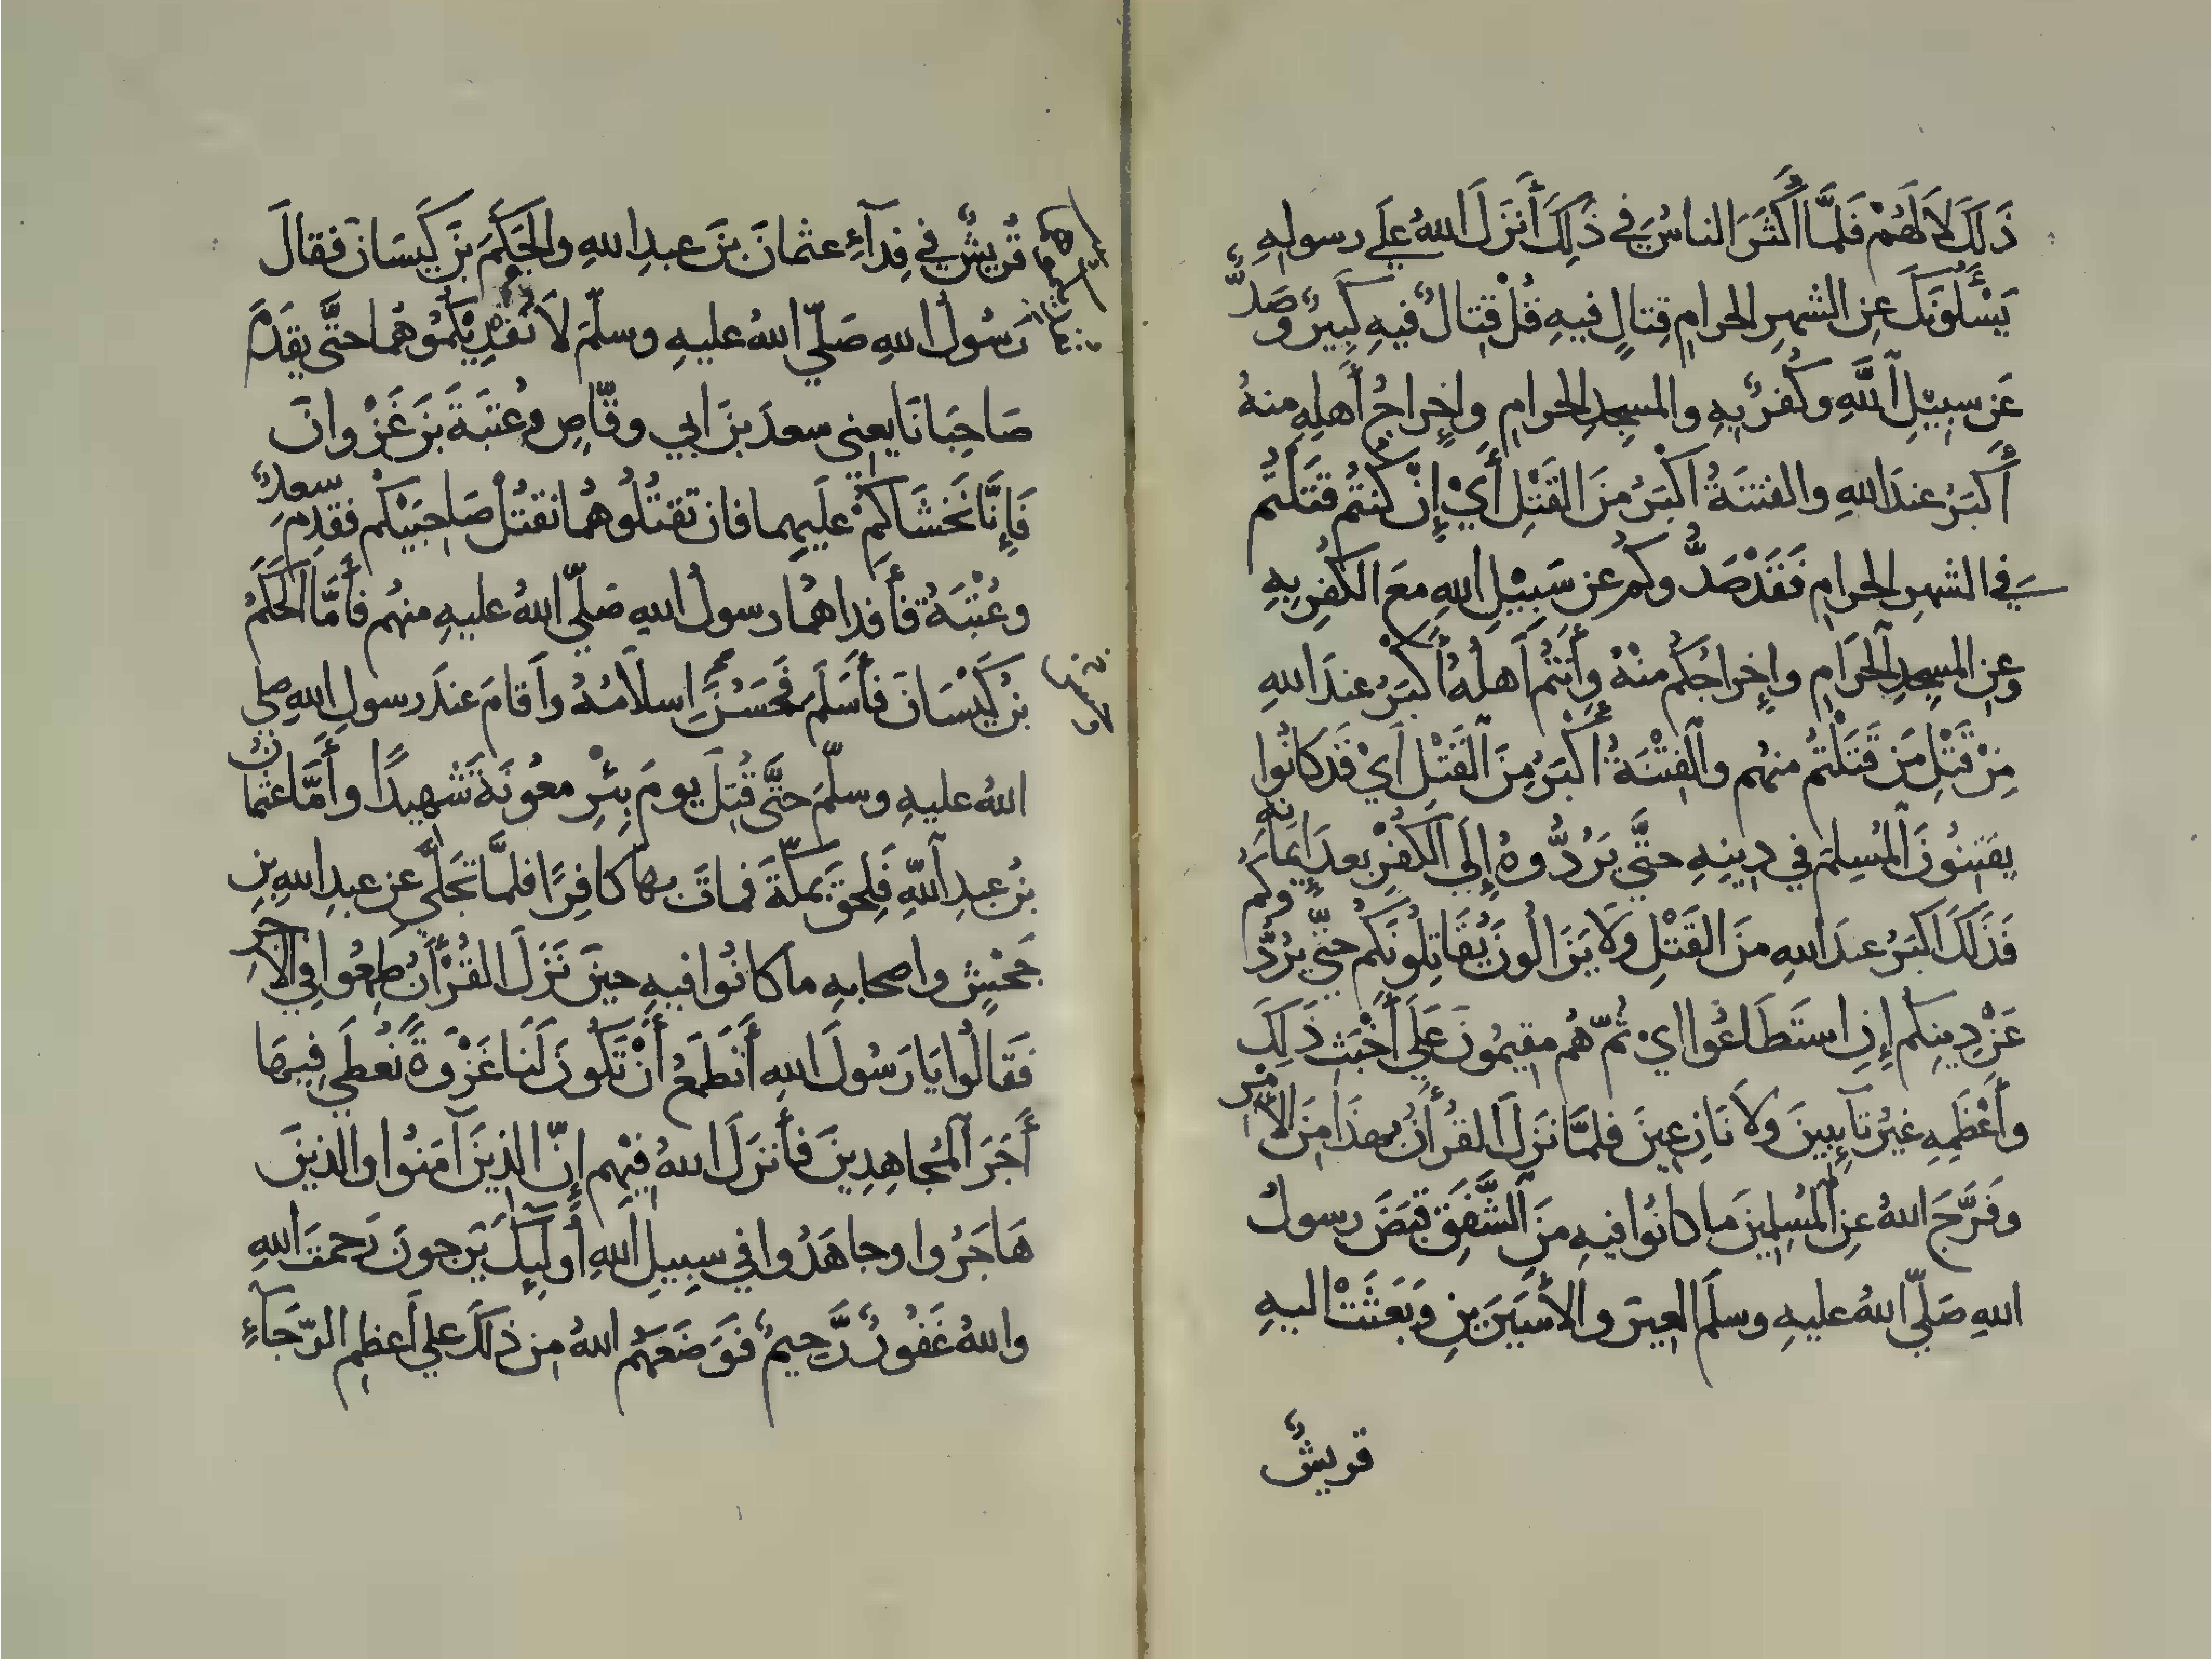 ذَلِكَ لاَ لَهُمْ فَلَمَّا أَكْثَرَ الناسُ في ذَلِكَ أَنزَلَ اللهُ عَلَى رسولِهِ
يَسْأَلُونَكَ عَنِ الشهرِ الحرامِ قِتالٍ فيهِ قُلْ قِتالٌ فيهِ كَبِيرٌ وصَدٌّ
عَن سبِيْلِ اللَّهِ وكُفْرٌ بِهِ والمسجِدِ الحرامِ وإخراجُ أَهلِهِ منهُ
أَكْبَرُ عندَ اللهِ والفتنَةُ اكْبَرُ منَ القَتْلِ أَيْ إِنْ كُنتُمْ قَتَلْتُم
في الشهرِ الحرامِ فَقَدْ صَدُّوكُم عن سَبِيْلِ اللهِ معَ الكُفرِ بِهِ
وعنِ المسجِدِ الحَرَامِ وإِخراجُكُم منْهُ وأَنتُم أَهلُهُ أَكْبَرُ عندَ اللهِ
مِنْ قَتْلِ مَن قَتَلْتُمْ منهُم والفِتْنَةُ أَكْبَرُ مِنَ القَتْلِ أَيْ قَد كانُوا
يفتِنُونَ المُسلِمَ في دِينِهِ حتَّى يَرُدُّوهُ إِلَى الكُفْرِ بعدَ إِيمانِهِ
فَذَلكَ اكبَرُ عندَ اللهِ منَ القَتْلِ ولاَ يَزَالُونَ يُقَاتِلُونَكُم حتَّى يرُدُّوكُم
عَنْ دِينِكُم إِنِ استَطَاعُوا ايْ ثُمَّ هُم مقيمُونَ عَلَى أَخْبَثِ ذَلِكَ
وأَعْظَمِهِ غيرُ تَآئِبِينَ ولاَ نَازِعِينَ فلمَّا نَزَلَ القُرْآنُ بهذَا مِنَ الأَمْرِ
وفَرَّجَ اللهُ عنِ المُسلِمِينَ ما كانُوا فيهِ منَ الشَّفَقِ قبَضَ رسولُ
اللهِ صَلَّى اللهُ عليهِ وسلَّمَ العِيرَ والأَسَيْرَيْنِ وبَعَثَتْ اليهِ
قريشٌ
قُريشٌ في فِدَآءِ عثمانَ بنَ عبدِ اللهِ والحَكَمَ بنَ كَيسَانَ فقالَ
رَسُولُ اللهِ صَلَّى اللهُ عليهِ وسلَّمَ لاَ نُفْدِيْكُمُوهُمَا حتَّى يقدَمَ
صَاحِبَانَا يعني سعدَ بنَ ابي وقَّاصٍ وعُتبَةَ بنَ غَزْوانَ
فَإِنَّا نَخشَاكُمْ عليهِما فان تقتُلُوهُما نقتُلْ صَاحِبَيْكُم فقدِمَ سعدٌ
وعُتْبَةُ فأَفداهُما رسولُ اللهِ صَلَّى اللهُ عليهِ منهُم فأَمَّا الحَكَمُ
بنُ كَيْسَانَ فأَسلَمَ فحَسُنَ إِسلاَمُهُ وأَقامَ عندَ رسولِ اللهِ صلى
اللهُ عليهِ وسلَّمَ حتَّى قُتِلَ يومَ بِئْرِ معُونَةَ شهيدًا وأَمَّا عثمانُ
بنُ عبدِ اللهِ فلحِقَ بمكَّةَ فماتَ بها كافِرًا فلمَّا تجَلَّى عن عبدِ اللهِ بنِ
جَحْشٍ واصحابِهِ ما كانُوا فيهِ حينَ نَزَلَ القُرْآنُ طمِعُوا في الأَجرِ
فَقالُوا يَا رَسُولَ اللهِ أَنَطمَعُ أَنْ تَكُونَ لَنَا غَزْوَةً نُعْطَى فِيهَا
أَجرَ المُجاهِدِينَ فأَنزَلَ اللهُ فيْهِم إِنَّ الذِينَ آمَنُوا والذينَ
هَاجَرُوا وجاهَدُوا في سبِيلِ اللهِ أُولَئِكَ يَرجونَ رَحمتَ اللهِ
واللهُ غَفُورٌ رَّحِيمٌ فوَضَعَهُم اللهُ مِن ذَلكَ علَى أَعظمِ الرَّجَآءِ